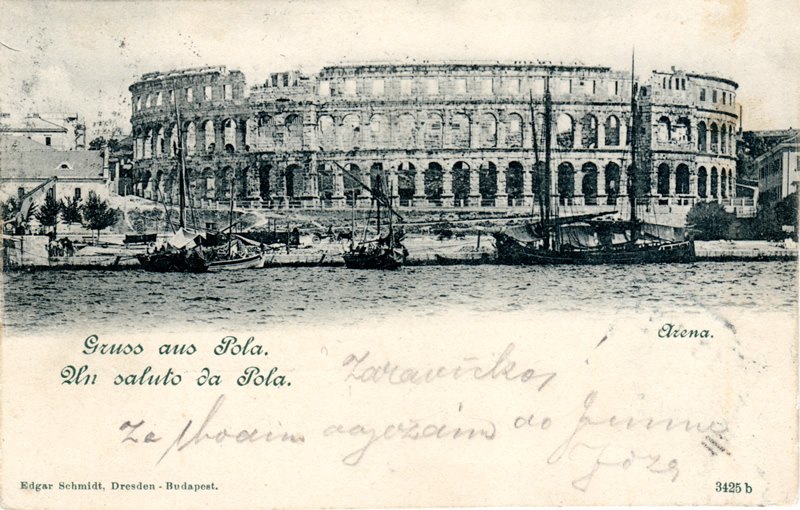 Gruss aus Pola.
Un saluto da Pola.
Arena.
odjozám do
Józa
Edgar Schmidt, Dresden - Budapest.
3425 b